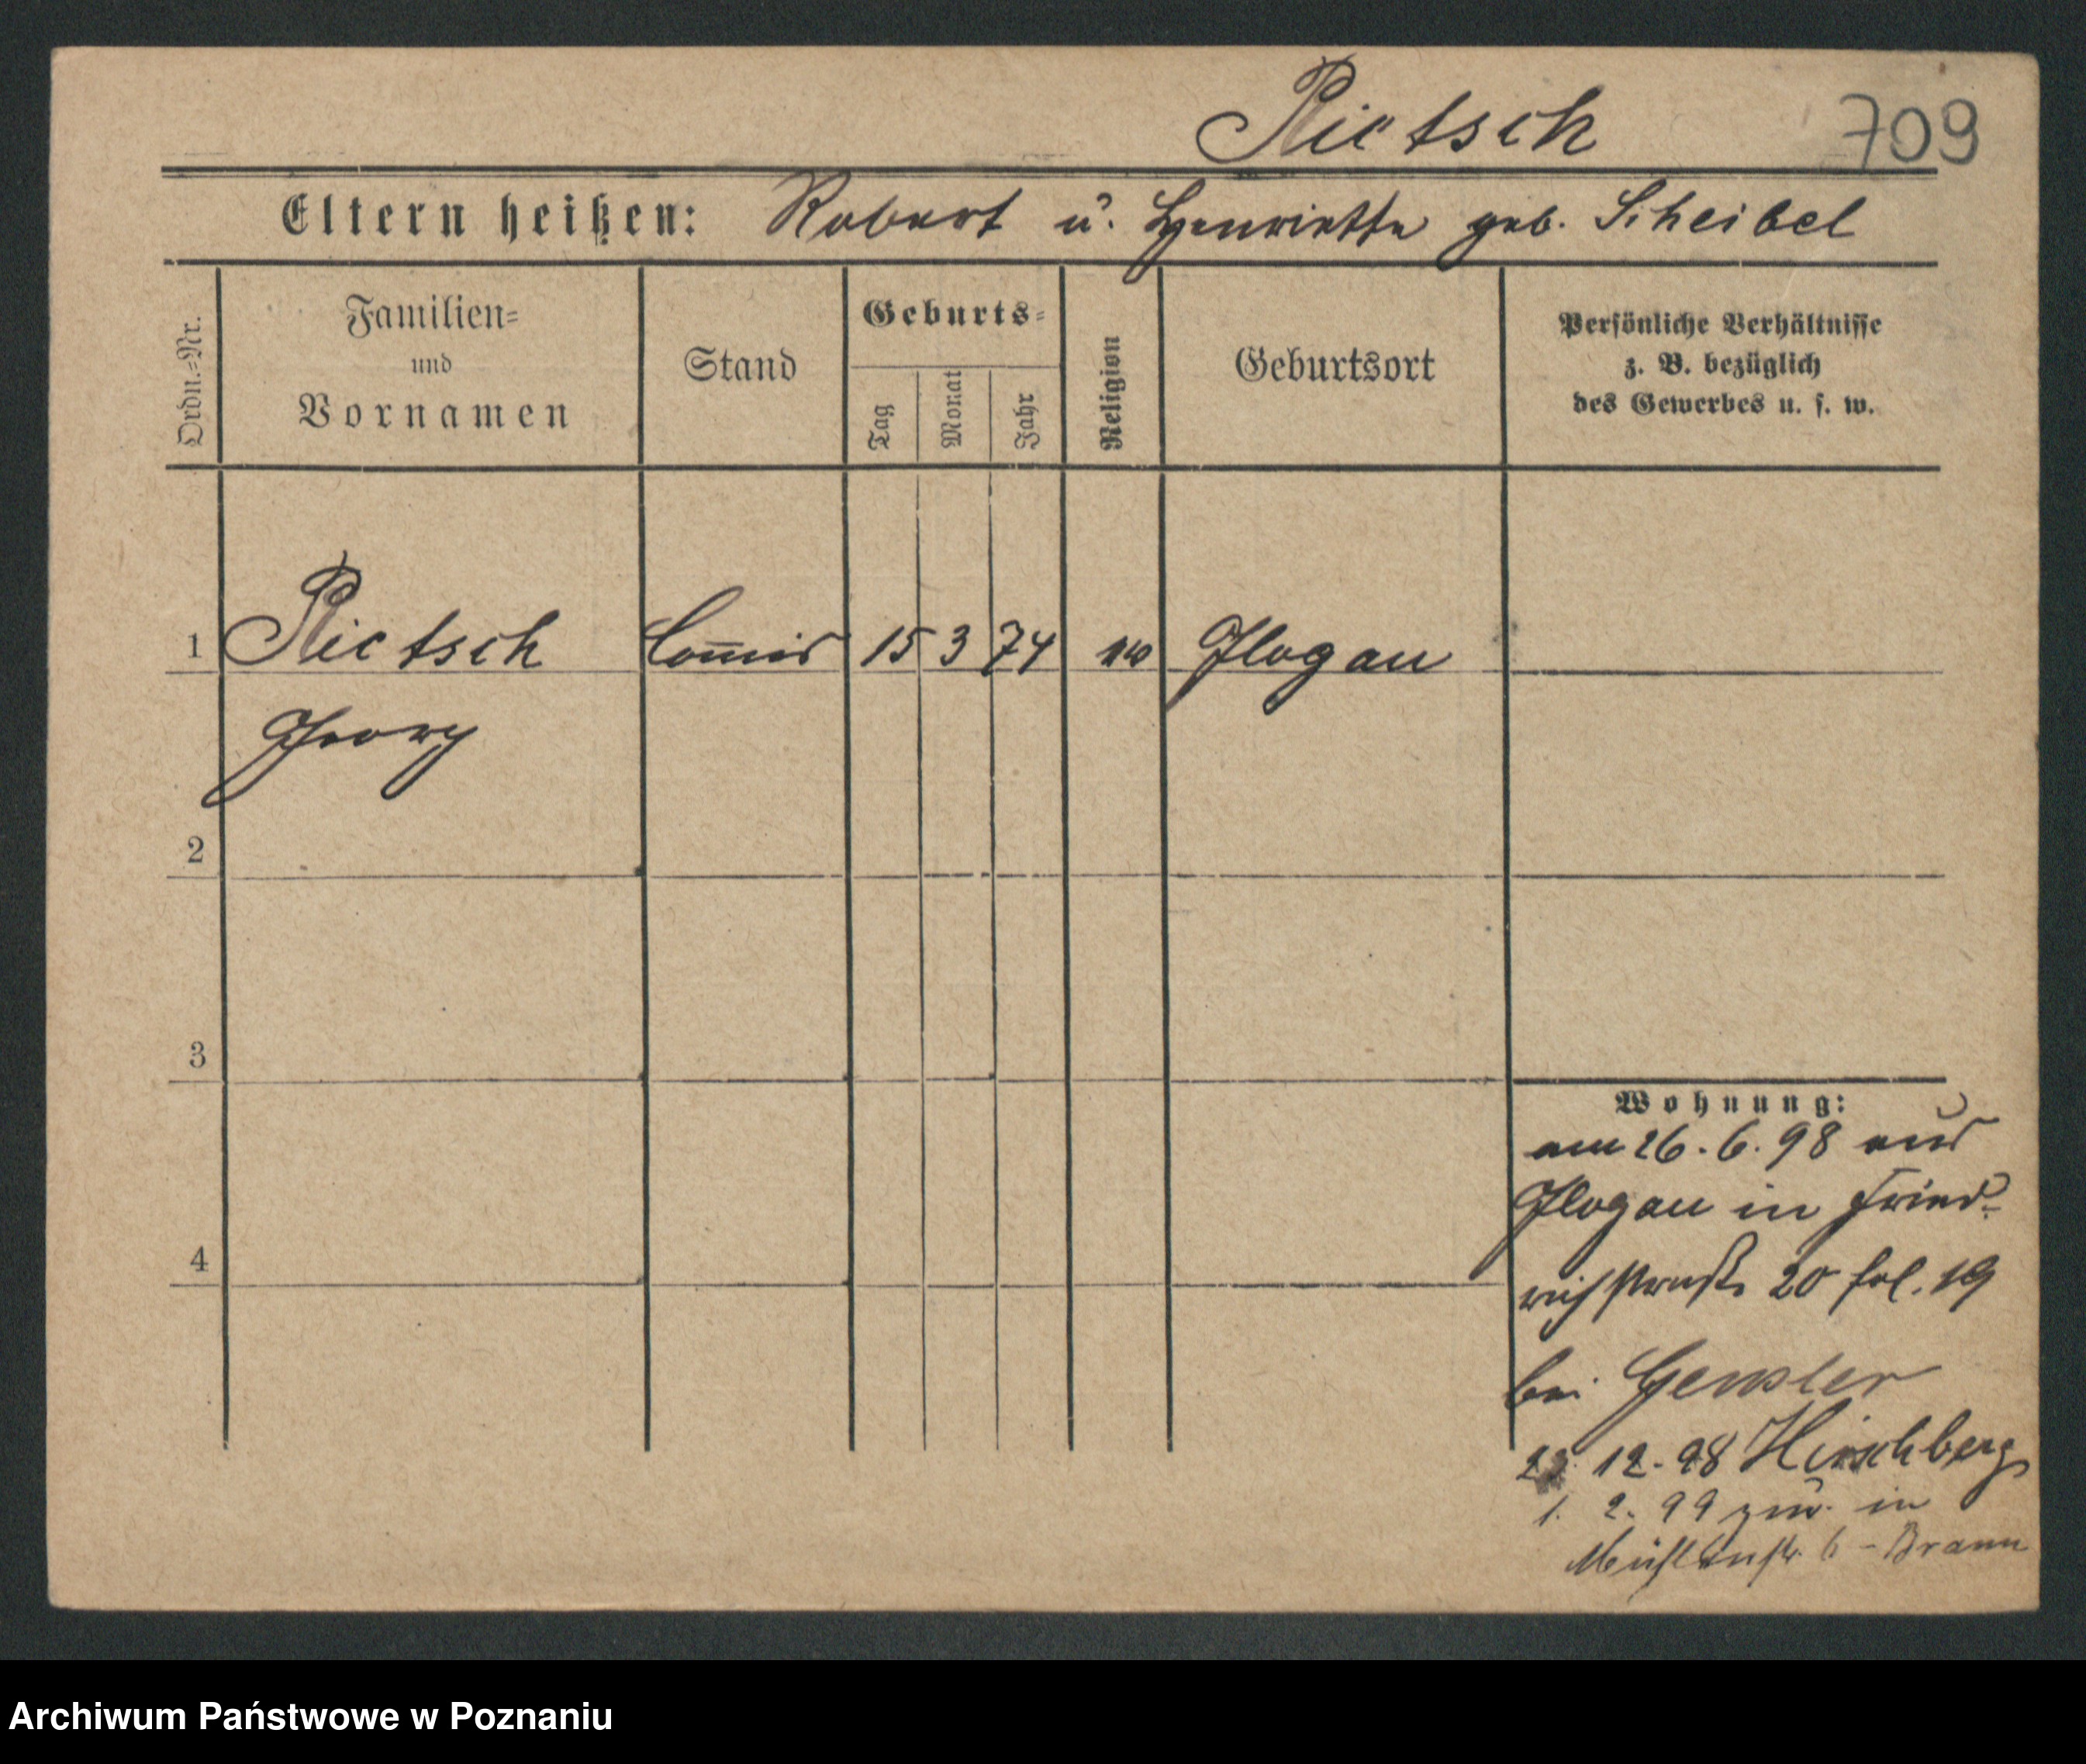 Rietsch 709
Eltern heißen: Robert u. Henriette geb. Scheibel
Ordn.=Nr.
Familien=
und
Vornamen
Stand
Geburts=
Tag
Monat
Jahr
Religion
Geburtsort
Persönliche Verhältnisse
z. B. bezüglich
des Gewerbes u. s. w.
1 Rietsch Com̅is 15 3 74 Glogau
Georg
2
3
4
Wohnung:
am 26. 6. 98 aus
Glogau in Fried-
richstraße 20 fol. 19
bei Gensler
12. 98 Hirschberg
1. 2. 99 zur. in
Mühlenstr. 6 - Braun
Archiwum Państwowe w Poznaniu